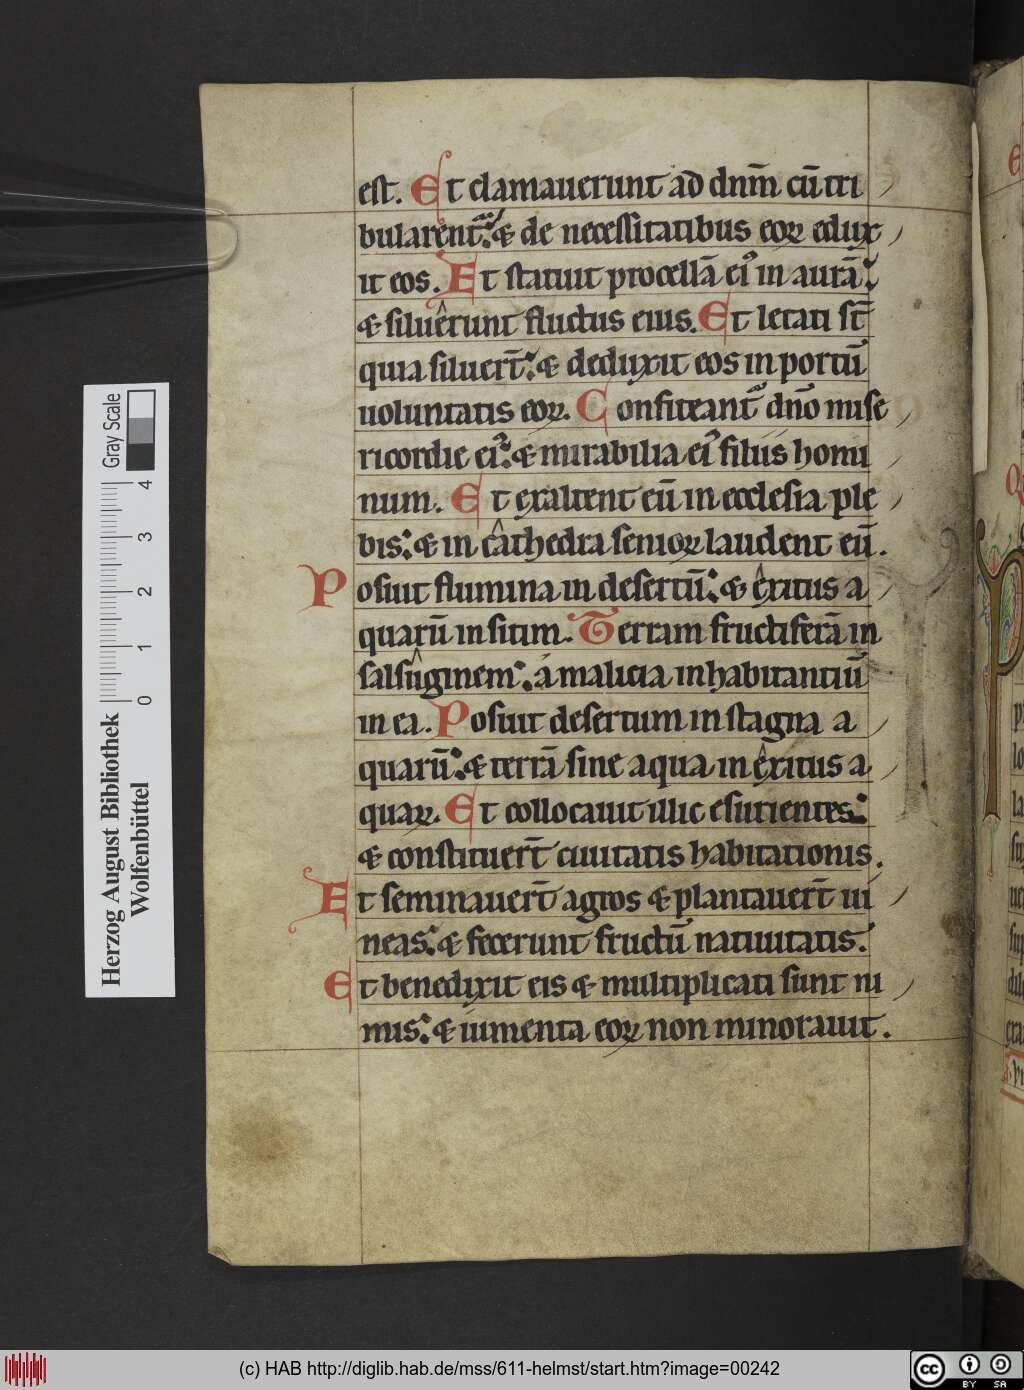 est. Et clamauerunt ad dnm̄ cū tri
bularent᷑. & de necessitatibus eoꝝ edux
it eos. Et statuit procellā ei᷒ in aurā.
& siluerunt fluctus eius. Et letati st̄
quia siluert̄. & deduxit eos in portū
uoluntatis eoꝝ. Confiteant᷑ dn̄o mise
ricordie ei᷒. & mirabilia ei᷒ filiis homi
num. Et exaltent eū in ecclesia ple
bis. & in cathedra senioꝝ laudent eū.
Posuit flumina in desertū. & exitus a
quarū in sitim. Terram fructiferā in
salsuginem. a malicia inhabitantiū
in ea. Posuit desertum in stagna a
quarū. & terrā sine aqua in exitus a
quaꝝ. Et collocauit illic esurientes.
& constituert̄ ciuitatis habitationis.
Et seminauert̄ agros & plantauert̄ ui
neas. & fecerunt fructū natiuitatis.
Et benedixit eis & multiplicati sunt ni
mis. & iumenta eoꝝ non minorauit.
Herzog August Bibliothek
Wolfenbüttel
Gray Scale
0 1 2 3 4
(c) HAB http://diglib.hab.de/mss/611-helmst/start.htm?image=00242
cc BY SA